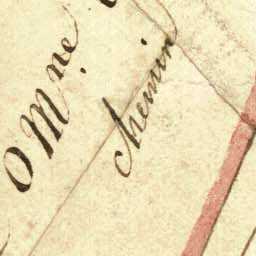 O M.ne
chemin